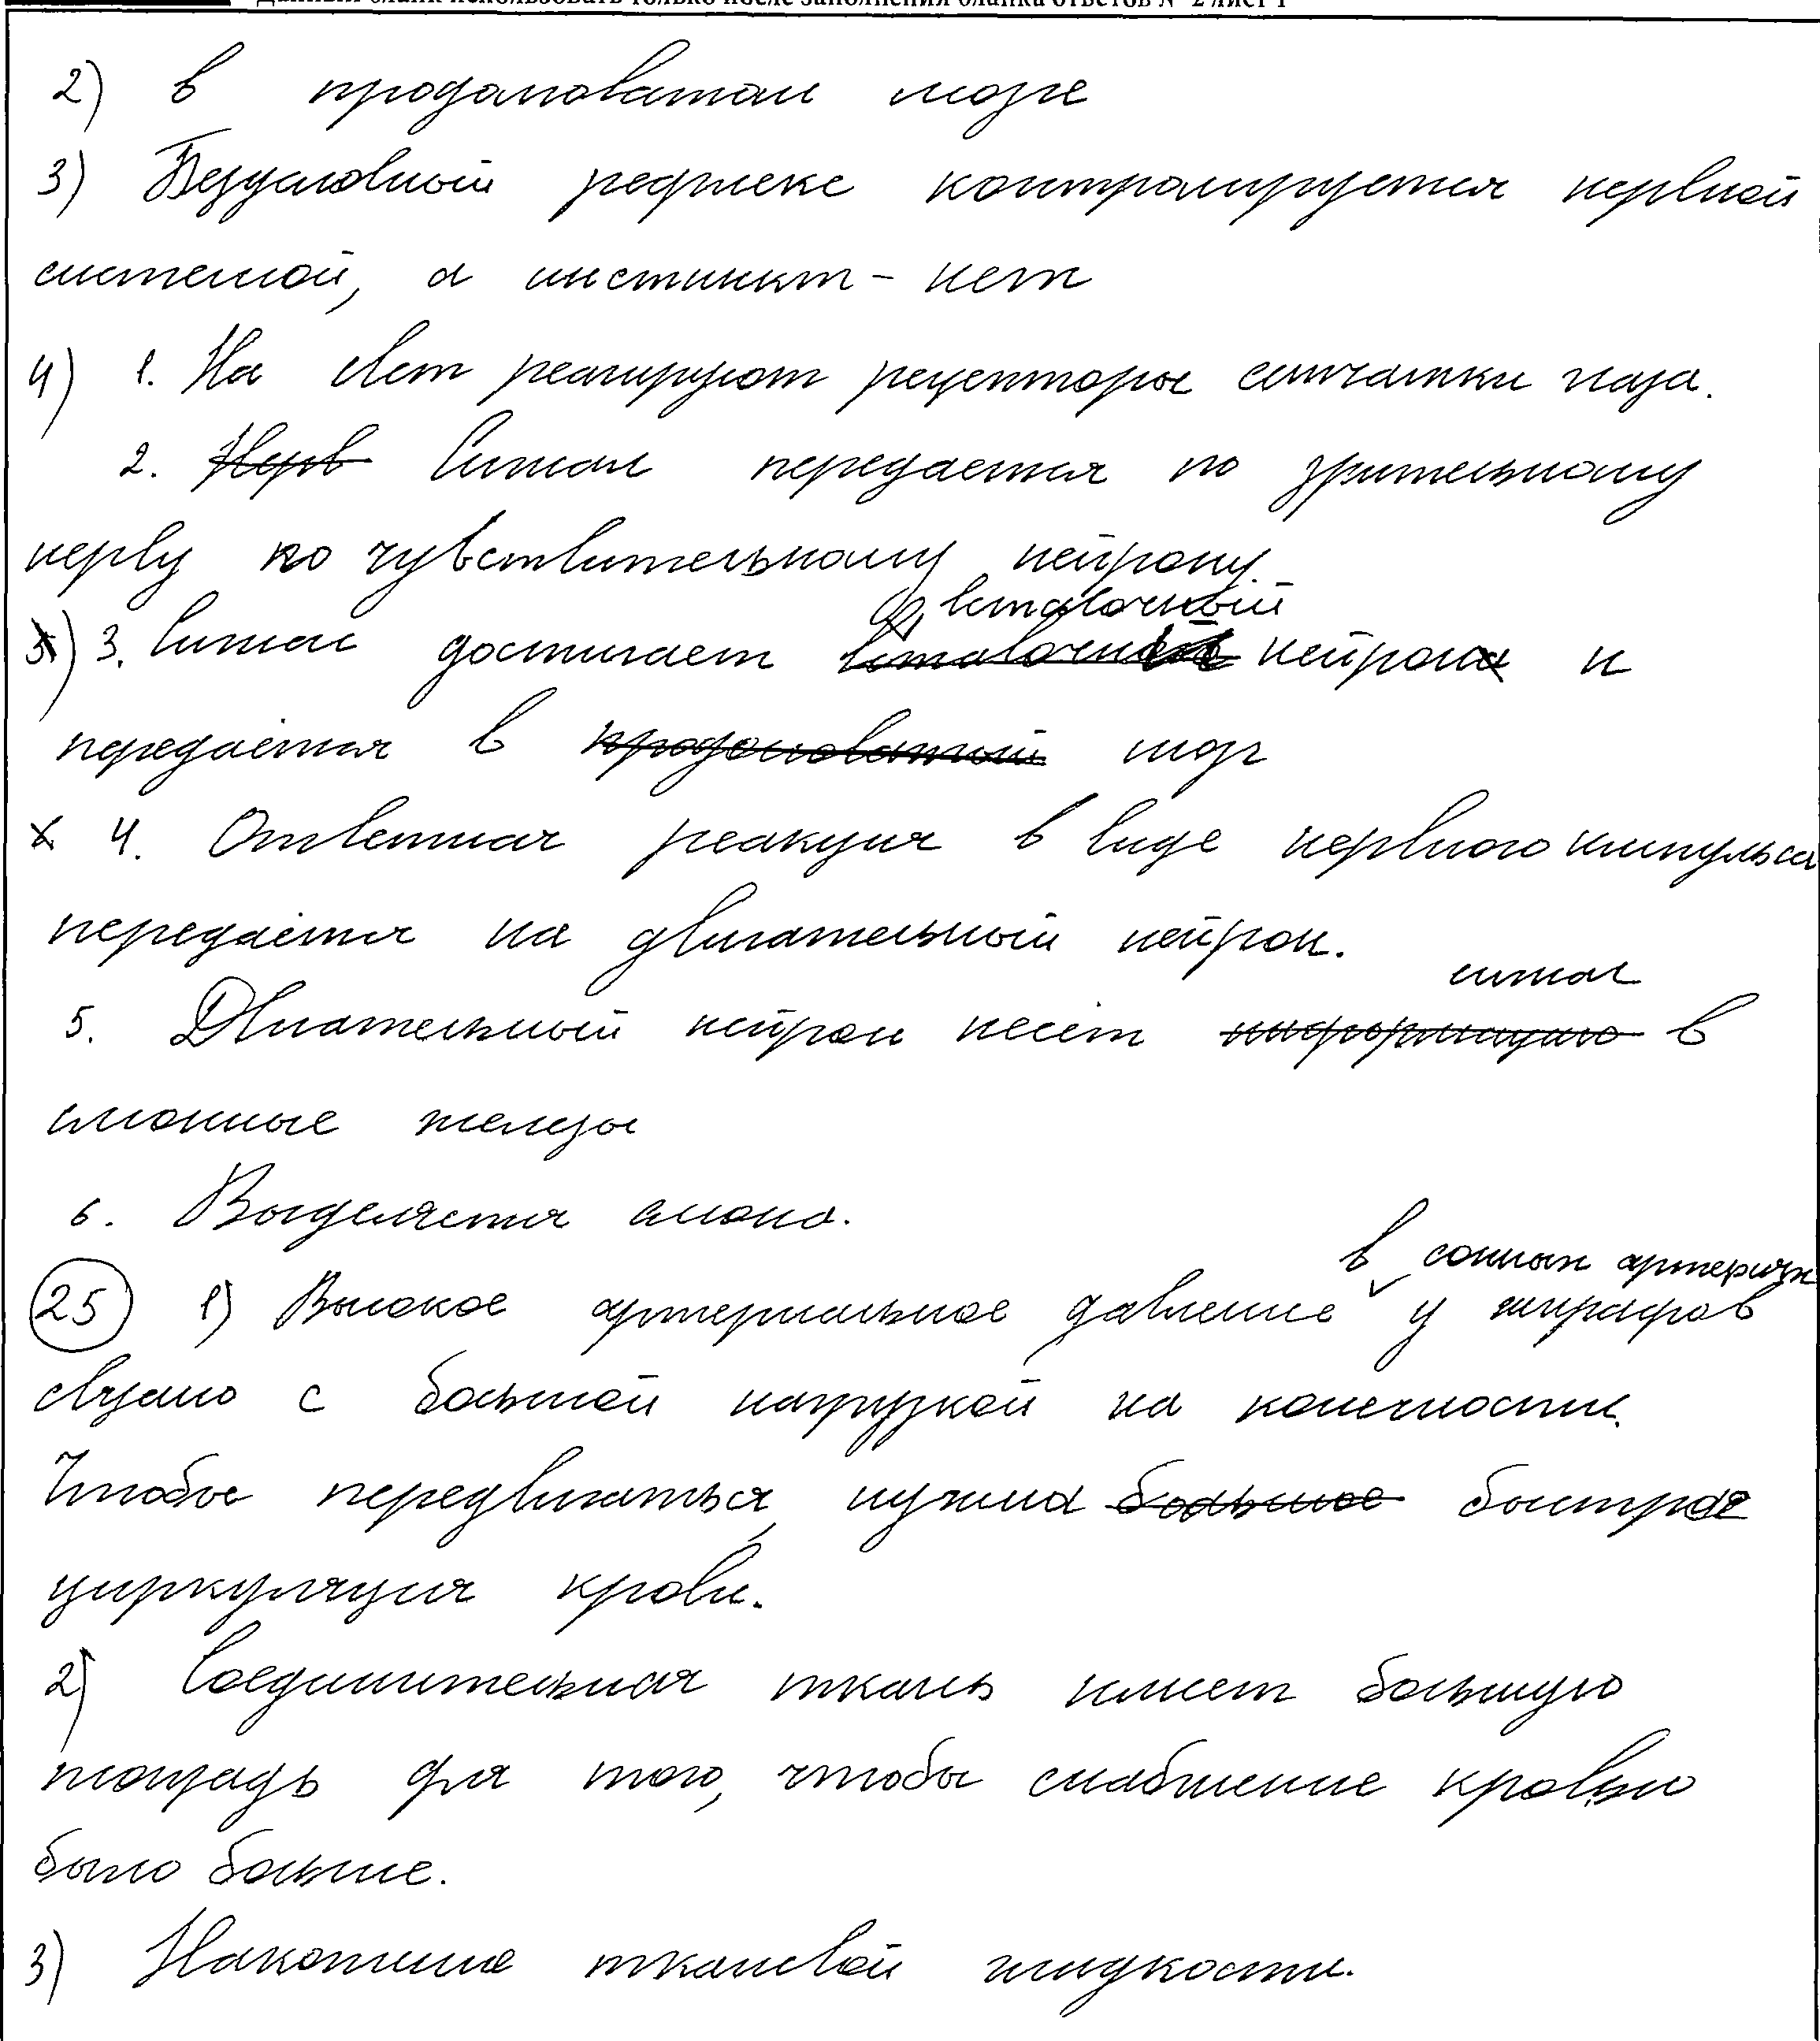 Данный бланк использовать только после заполнения бланка ответов № 2 лист 1
2) в продолговатом мозге
3) Безусловный рефлекс контролируется нервной
системой, а инстинкт - нет
4) 1. На свет реагируют рецепторы сетчатки глаза.
2. Нерв Сигнал передается по зрительному
нерву по чувствительному нейрону.
вставочный
3. Сигнал достигает нейрона и
передаётся в продолговатый мозг
4. Ответная реакция в виде нервного импульса
передаётся на двигательный нейрон.
сигнал
5. Двигательный нейрон несёт информацию в
слюнные железы
6. Выделяется слюна.
в сонных артериях
25 1) Высокое артериальное давление у жирафов
связано с большой нагрузкой на конечности.
Чтобы передвигаться, нужна большое быстрое
циркуляция крови.
2) Соединительная ткань имеет большую
площадь для того, чтобы снабжение кровью
было больше.
3) Накопление тканевой жидкости.